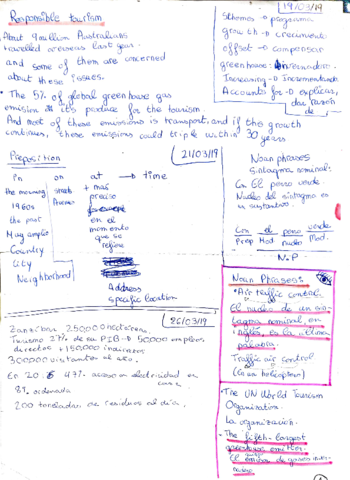 Responsible tourism
19/03/19
About 9 million Australians
travelled overseas last year.
and some of them are concerned
about these issues.
• The 5% of global greenhouse gas
emision it's produce for the tourism.
And most of these emissions is transport, and if the growth
continues, these emissions could triple within 30
years
schemes → programa
growth → crecimiento
offset → compensar
greenhouse: invernadero
Increasing → incrementando
Accounts for → explicar,
dar razón
de
Preposition
21/03/19
in on at → time
the morning
1960s
the past
Muy amplio
Country
City
Neighborhood
streets
+ más
preciso
en el
momento
que se
refiere
Address
specific location
Noun phrases
sintagma nominal:
Con el perro verde.
Nucleo del sintagma es
un sustantivo.
Con el perro verde
Prep Mod nucleo Mod.
N.P
26/03/19
Zanzibar 250,000 hectáreas.
Turismo 27% de su PIB → 50,000 empleos
directos + 150,000 indirectos
300000 visitantes al año.
En 20 47% acceso a electricidad en
casa
8% ordenada
200 toneladas de residuos al día.
Noun Phrases:
• Air traffic control.
El nucleo de un sin-
tagma nominal, en
inglés, es la última
palabra.
Traffic air control.
(En un helicóptero)
• The UN World Tourism
Organization.
La organización.
• The fifth-largest
greenhouse emitter.